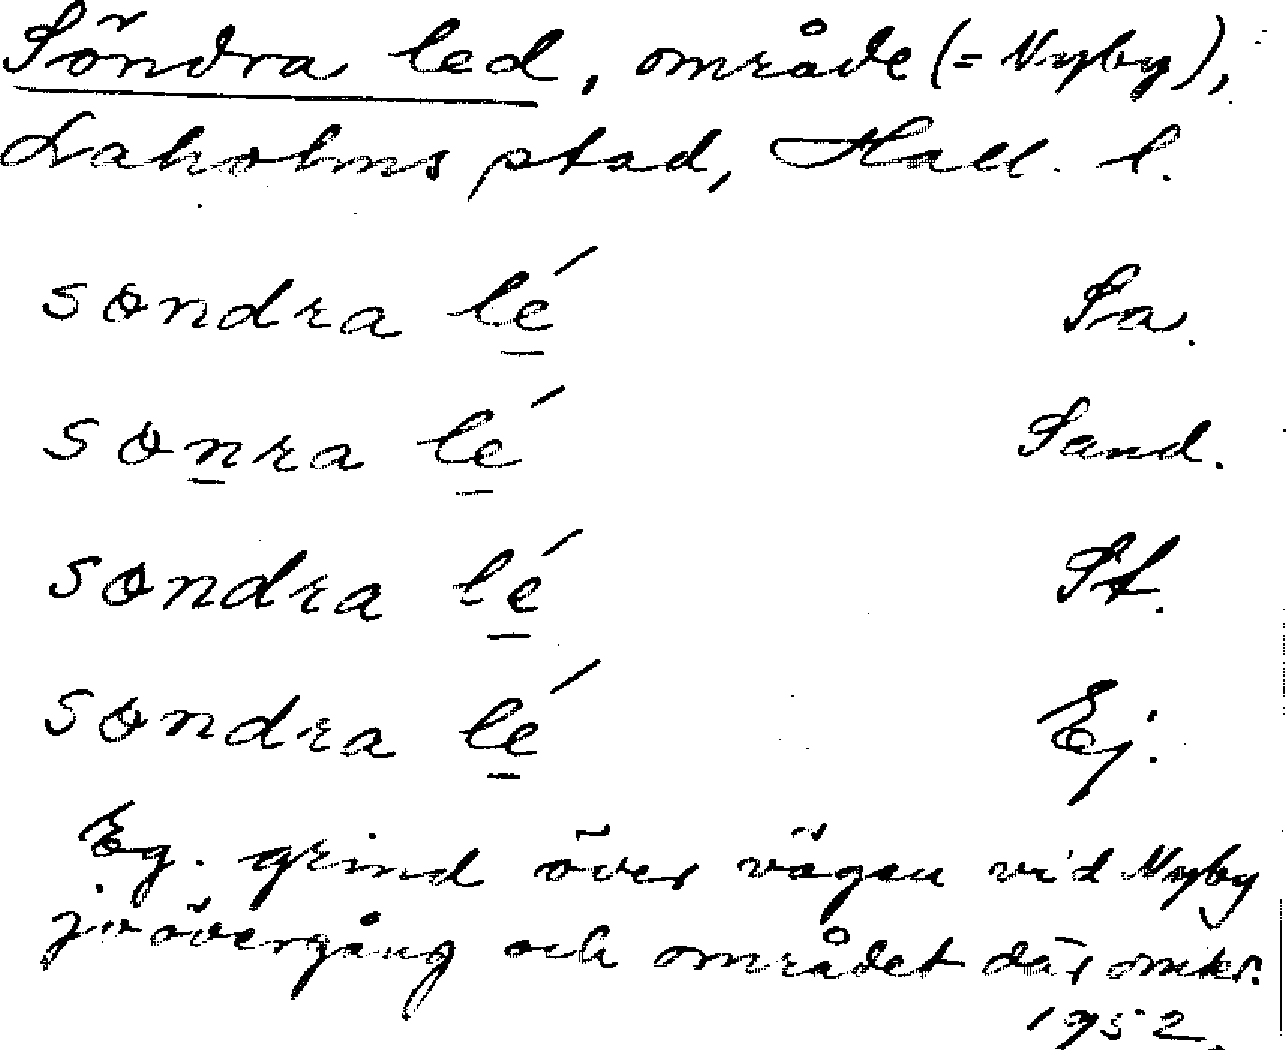 Söndra led, område (= Nyby),
Laholms stad, Hall. l.
sondra lé Sa.
sonra lé Sand.
sondra lé St.
sondra lé Ej.
Eg. grind över vägen vid Nyby
jvövergång och området där omkr.
1952.